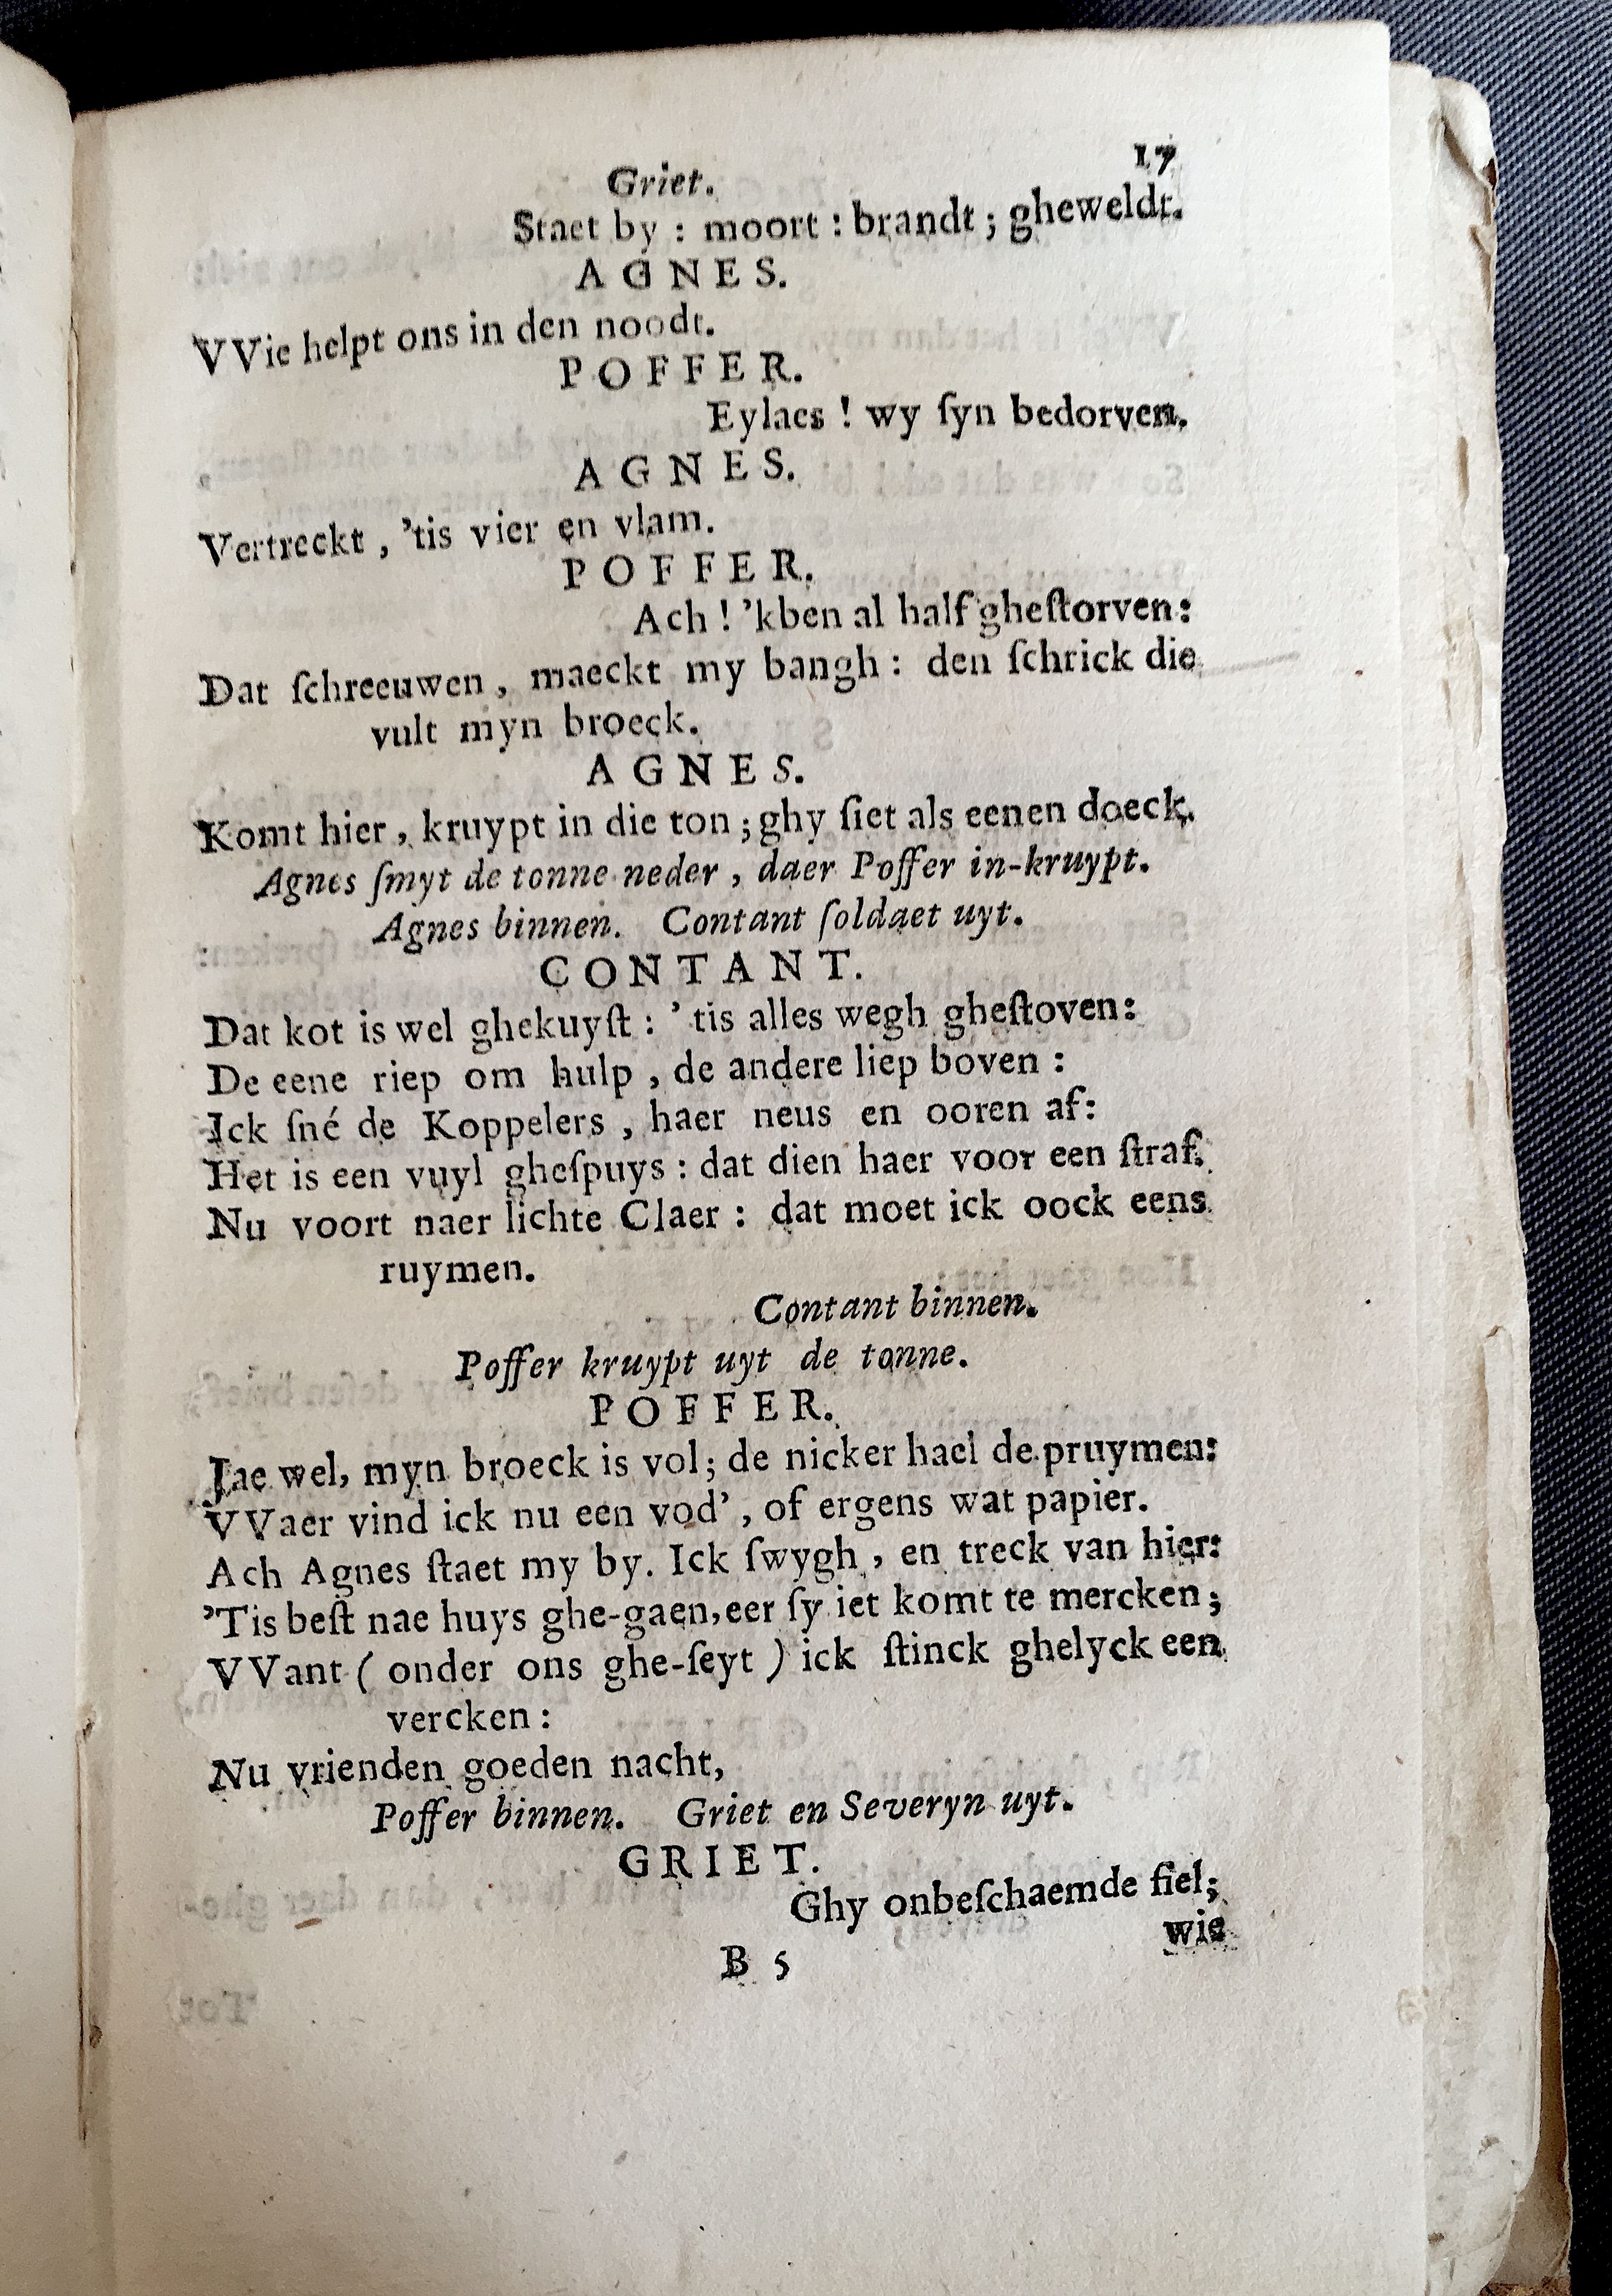 Griet. 17
Staet by : moort : brandt ; gheweldt.
AGNES.
VVie helpt ons in den noodt.
POFFER.
Eylaes ! wy ſyn bedorven.
AGNES.
Vertreckt , 'tis vier en vlam.
POFFER.
Ach ! 'kben al half gheſtorven:
Dat ſchreeuwen , maeckt my bangh : den ſchrick die
vult myn broeck.
AGNES.
Komt hier , kruypt in die ton ; ghy ſiet als eenen doeck.
Agnes ſmyt de tonne neder , daer Poffer in-kruypt.
Agnes binnen. Contant ſoldaet uyt.
CONTANT.
Dat kot is wel ghekuyſt : ' tis alles wegh gheſtoven:
De eene riep om hulp , de andere liep boven :
Ick ſné de Koppelers , haer neus en ooren af:
Het is een vuyl gheſpuys : dat dien haer voor een ſtraf.
Nu voort naer lichte Claer : dat moet ick oock eens
ruymen.
Contant binnen.
Poffer kruypt uyt de tonne.
POFFER.
Jae wel, myn broeck is vol; de nicker hael de pruymen:
VVaer vind ick nu een vod' , of ergens wat papier.
Ach Agnes ſtaet my by. Ick ſwygh , en treck van hier:
'Tis beſt nae huys ghe-gaen, eer ſy iet komt te mercken ;
VVant ( onder ons ghe-ſeyt ) ick ſtinck ghelyck een
vercken :
Nu vrienden goeden nacht,
Poffer binnen. Griet en Severyn uyt.
GRIET.
Ghy onbeſchaemde fiel;
wie
B 5